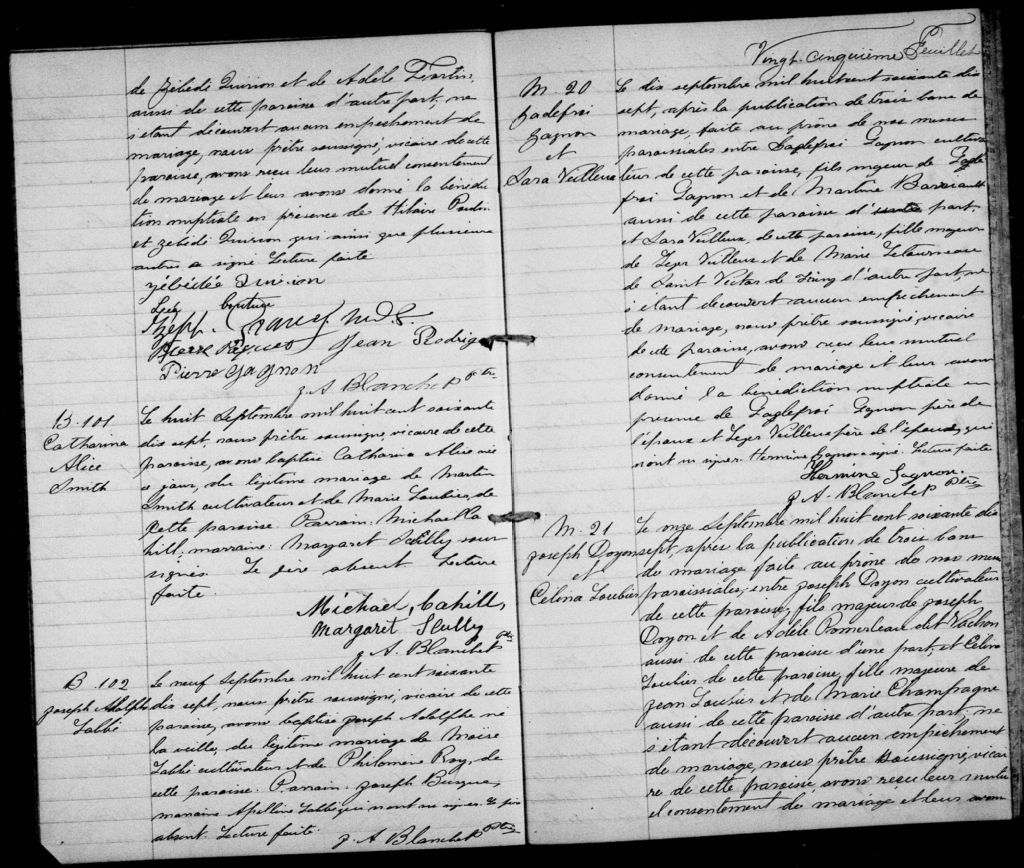 de Zébédé Quirion et de Adèle
aussi de cette paroisse d'autre part, ne
s'étant découvert aucun empêchement de
mariage, nous prêtre soussigné, vicaire de cette
paroisse, avons reçu leur mutuel consentement
de mariage et leur avons donné la bénédic
tion nuptiale en présence de Hilaire Poulin
et Zébédé Quirion qui ainsi que plusieurs
autres a signé Lecture faite
Zébédée Quirion
Jean Rodrigue
Pierre Gagnon
J. A. Blanchet Ptre
B. 101
Catharina
Alice
Smith
Le huit Septembre mil huit cent soixante
dix sept, nous prêtre soussigné, vicaire de cette
paroisse, avons baptisé Catharina Alice née
ce jour, du légitime mariage de Martin
Smith cultivateur et de Marie Loubier, de
cette paroisse. Parrain: Michael Ca
hill, marraine: Margaret Scully sous
signés. Le père absent Lecture
faite.
Michael Cahill,
Margaret Scully
J. A. Blanchet Ptre
B. 102
Joseph Adolphe
Labbé
Le neuf Septembre mil huit cent soixante
dix sept, nous prêtre soussigné, vicaire de cette
paroisse, avons baptisé Joseph Adolphe né
la veille, du légitime mariage de Moise
Labbé cultivateur et de Philomène Roy, de
cette paroisse. Parrain: Joseph
marraine Labbé qui n'ont su signer. Le père
absent. Lecture faite.
J. A. Blanchet Ptre
Vingt-cinquième Feuillet
M. 20
Godefroi
Gagnon
et
Sara Veilleux
Le dix septembre mil huit cent soixante dix
sept, après la publication de trois bans de
mariage, faite au prône de nos messes
paroissiales entre Godefroi Gagnon cultiva
teur de cette paroisse, fils majeur de Gode
froi Gagnon et de Martine
aussi de cette paroisse d' part,
et Sara Veilleux, de cette paroisse, fille majeure
de Léger Veilleux et de Marie Letourneau
de Saint Victor de Tring d'autre part, ne
s'étant découvert aucun empêchement
de mariage, nous prêtre soussigné, vicaire
de cette paroisse, avons reçu leur mutuel
consentement de mariage et leur avons
donné la bénédiction nuptiale en
présence de Godefroi Gagnon père de
l'époux et Léger Veilleux père de l'épouse, qui
n'ont su signer. Hermine Gagnon a signé. Lecture faite
Hermine Gagnon.
J. A. Blanchet Ptre
M. 21
Joseph Doyon
et
Celina Loubier
Le onze Septembre mil huit cent soixante dix
sept, après la publication de trois bans
de mariage faite au prône de nos messes
paroissiales, entre Joseph Doyon cultivateur
de cette paroisse, fils majeur de Joseph
Doyon et de Adèle Pomerleau dit Vachon
aussi de cette paroisse d'une part, et Celina
Loubier de cette paroisse, fille majeure de
Jean Loubier et de Marie Champagne
aussi de cette paroisse d'autre part, ne
s'étant découvert aucun empêchement
de mariage, nous prêtre soussigné, vicai
re de cette paroisse avons reçu leur mutu
el consentement de mariage et leur avons